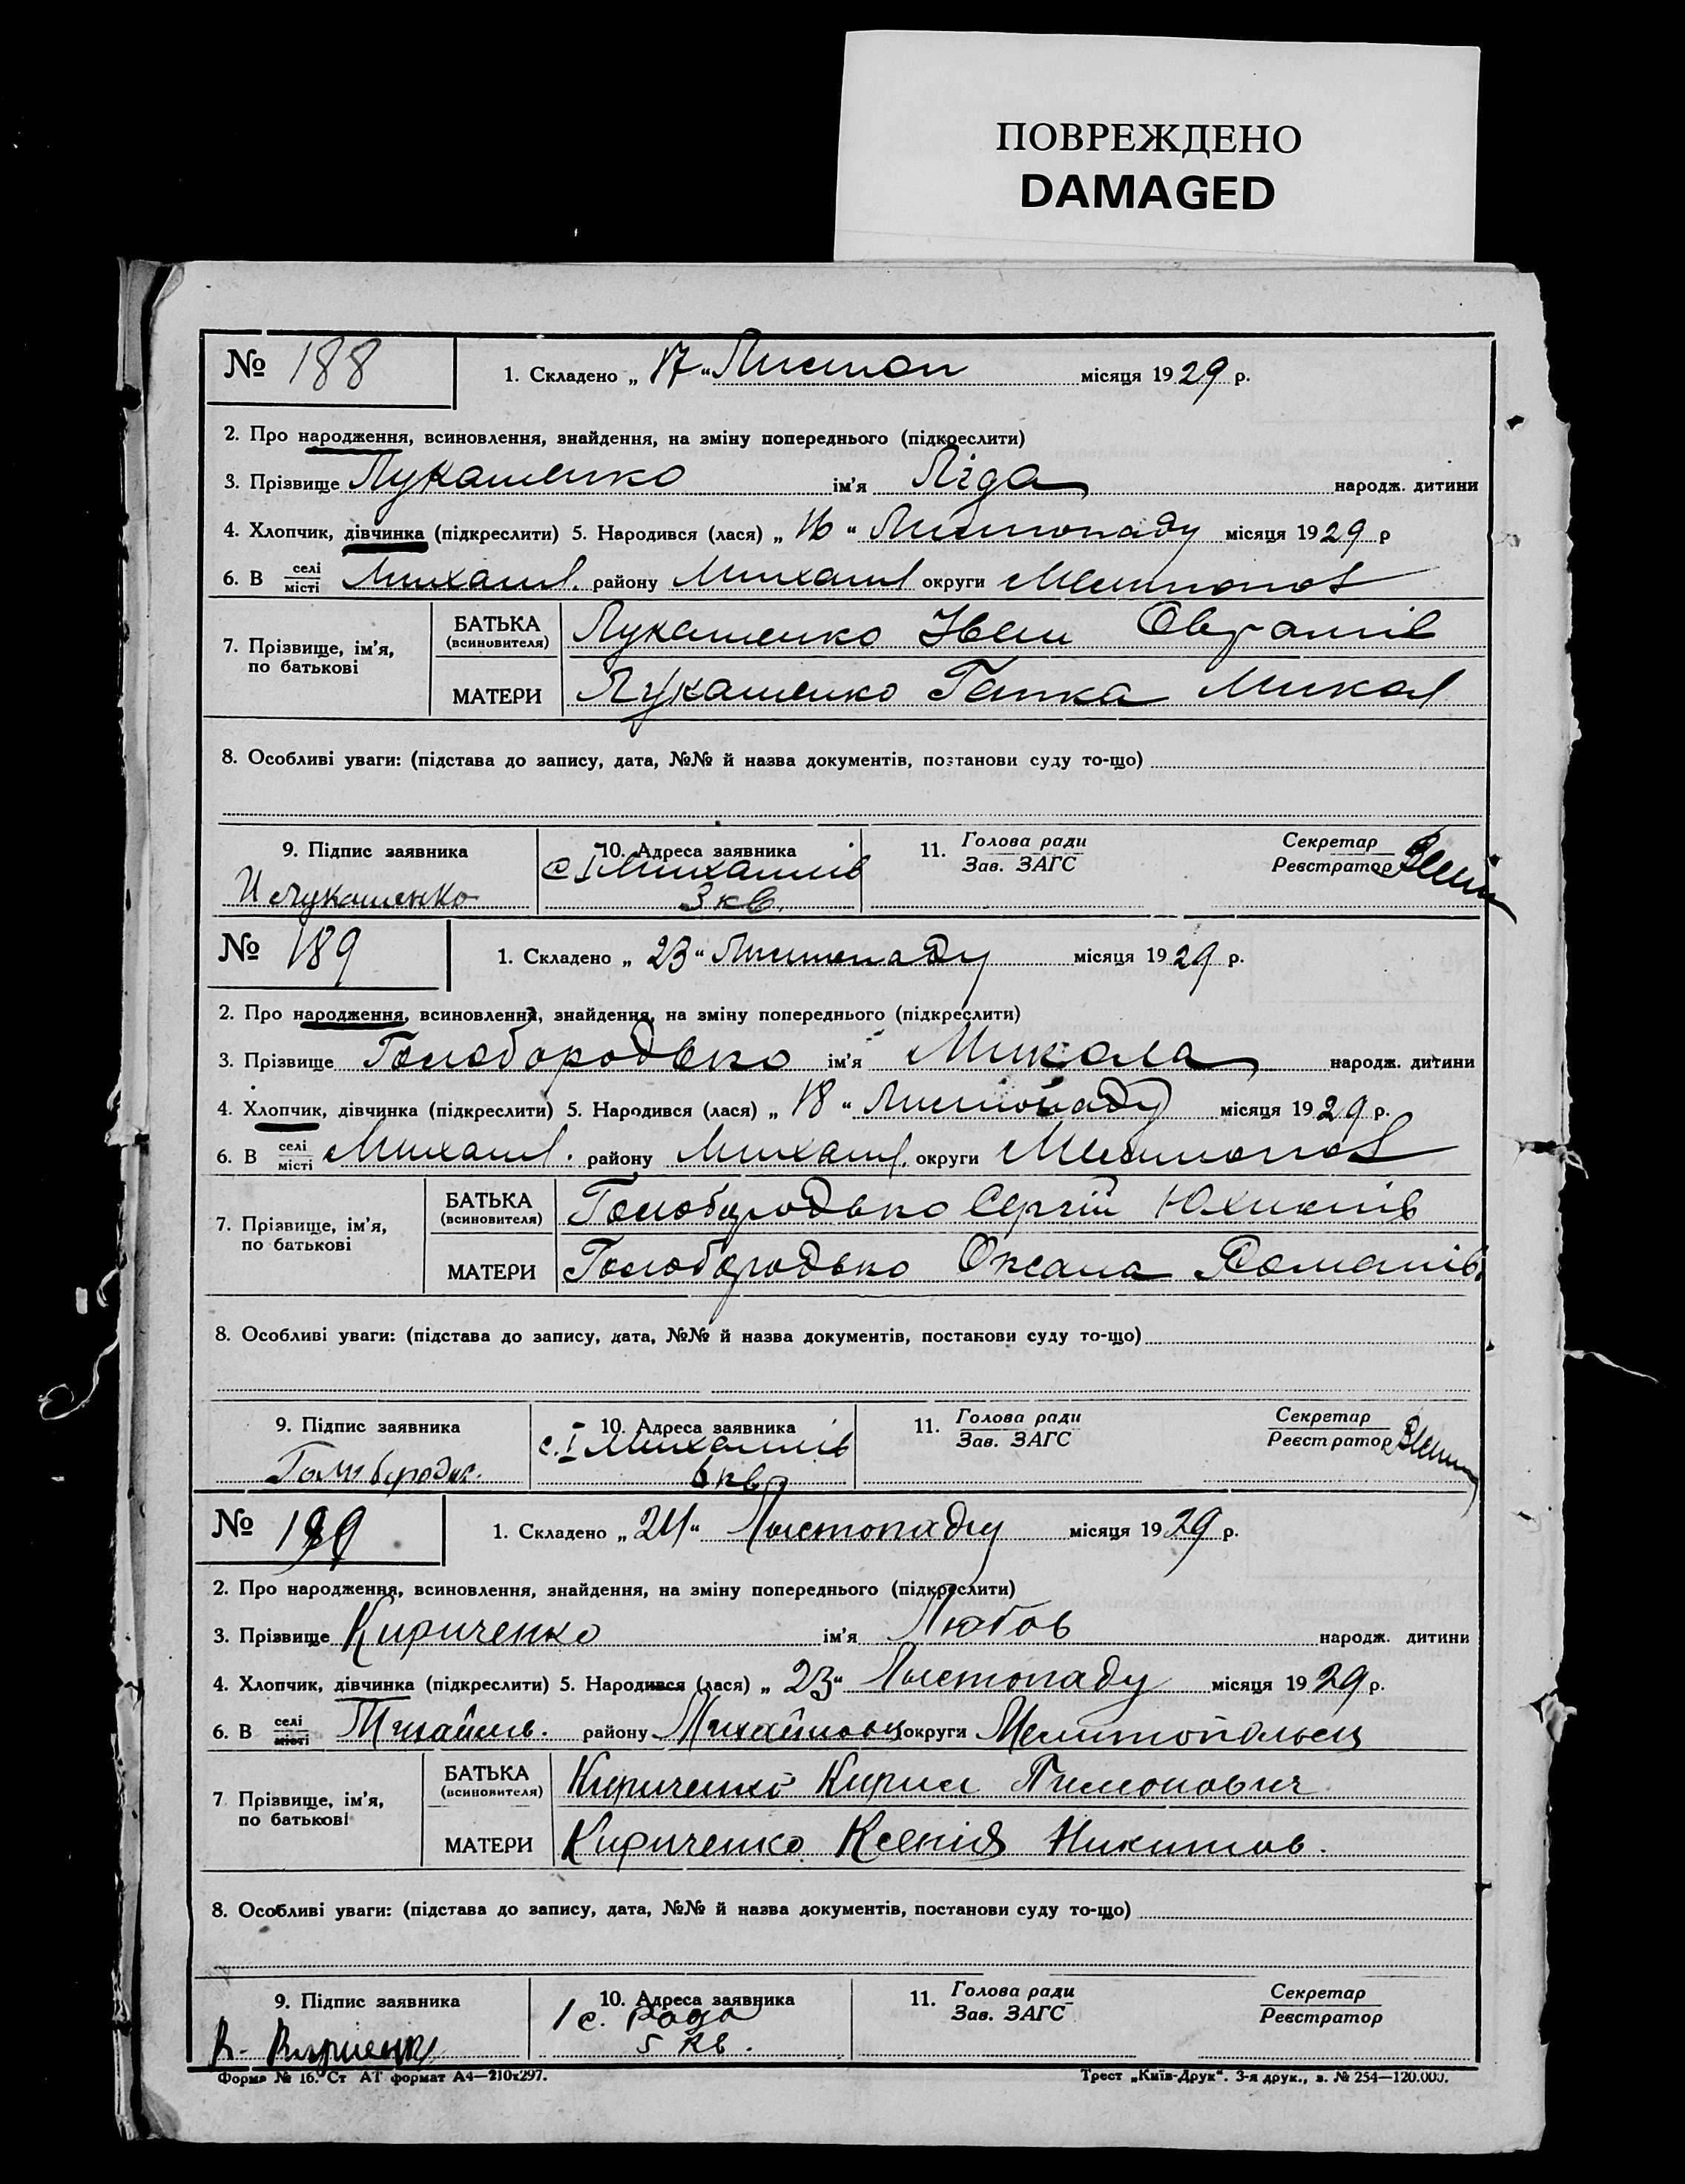 ПОВРЕЖДЕНО
DAMAGED
№ 188 1. Складено „ 17 “ Листоп місяця 1929 р.
2. Про народження, всиновлення, знайдення, на зміну попереднього (підкреслити)
3. Прізвище Лукашенко ім'я Ліда народж. дитини
4. Хлопчик, дівчинка (підкреслити) 5. Народився (лася) „ 16 “ Листопаду місяця 1929 р
6. В селі місті Михайлів. району Михайлів округи Мелитопол
7. Прізвище, ім'я, по батькові
БАТЬКА (всиновителя) Лукашенко Іван Оврамів
МАТЕРИ Лукашенко Ганка Микол
8. Особливі уваги: (підстава до запису, дата, №№ й назва документів, постанови суду то-що)
9. Підпис заявника 10. Адреса заявника 11. Голова ради Секретар
Зав. ЗАГС Реєстратор
И Лукашенко с. I Михайлів
3 кв.
№ 189 1. Складено „ 23 “ Листопаду місяця 1929 р.
2. Про народження, всиновлення, знайдення, на зміну попереднього (підкреслити)
3. Прізвище Голобородько ім'я Микола народж. дитини
4. Хлопчик, дівчинка (підкреслити) 5. Народився (лася) „ 18 “ Листопаду місяця 1929 р.
6. В селі місті Михайлів. району Михайлів. округи Мелитопол
7. Прізвище, ім'я, по батькові
БАТЬКА (всиновителя) Голобородько Сергій Юхимів
МАТЕРИ Голобородько Оксана Романів.
8. Особливі уваги: (підстава до запису, дата, №№ й назва документів, постанови суду то-що)
9. Підпис заявника 10. Адреса заявника 11. Голова ради Секретар
Зав. ЗАГС Реєстратор
с. I Михайлів
6 кв
№ 190 1. Складено „ 24 “ Листопаду місяця 1929 р.
2. Про народження, всиновлення, знайдення, на зміну попереднього (підкреслити)
3. Прізвище Кириченко ім'я Любов народж. дитини
4. Хлопчик, дівчинка (підкреслити) 5. Народився (лася) „ 23 “ Листопаду місяця 1929 р.
6. В селі місті Михайлів. району округи
7 Прізвище, ім'я, по батькові
БАТЬКА (всиновителя) Кириченко Кирил Тимонович
МАТЕРИ Кириченко Ксенія Никитов.
8. Особливі уваги: (підстава до запису, дата, №№ й назва документів, постанови суду то-що)
9. Підпис заявника 10. Адреса заявника 11. Голова ради Секретар
Зав. ЗАГС Реєстратор
1 с. Рада
5 кв.
Форма № 16. Ст АТ формат А4—210х297. Трест „Київ-Друк“. 3-я друк., з. № 254—120.000.